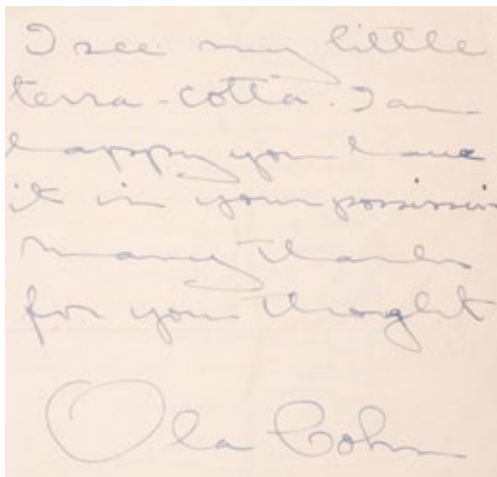 I see my little
terra-cotta. I am
happy you have
it in your possession
many thanks
for your thought
Ola Cohn